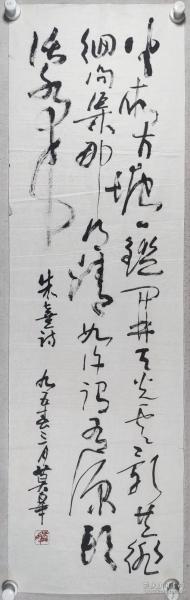 半亩方塘一鉴开天光云影共徘
徊问渠那得清如许为有源头
活水来
朱熹诗
九五春三月